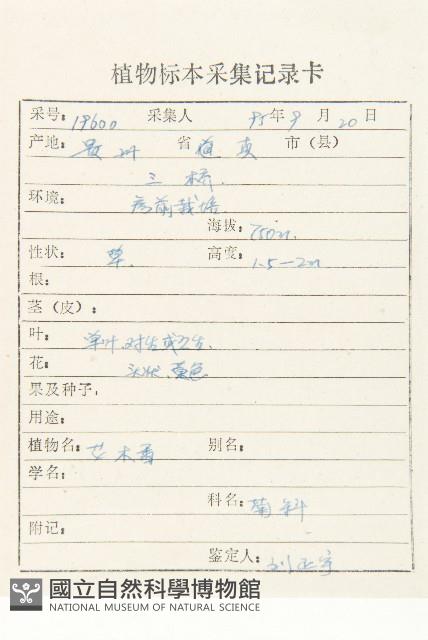 植物标本采集记录卡
采号: 19600 采集人 95年9月20日
产地: 贵州 省 道真 市（县）
三桥.
环境: 房前栽培
海拔: 750m.
性状: 草. 高变: 1.5—2m
根:
茎（皮）:
叶: 单叶,对生或互生.
花: 头状、黄色
果及种子:
用途:
植物名: 土木香 别名:
学名:
科名: 菊科
附记:
鉴定人:
國立自然科學博物館
NATIONAL MUSEUM OF NATURAL SCIENCE